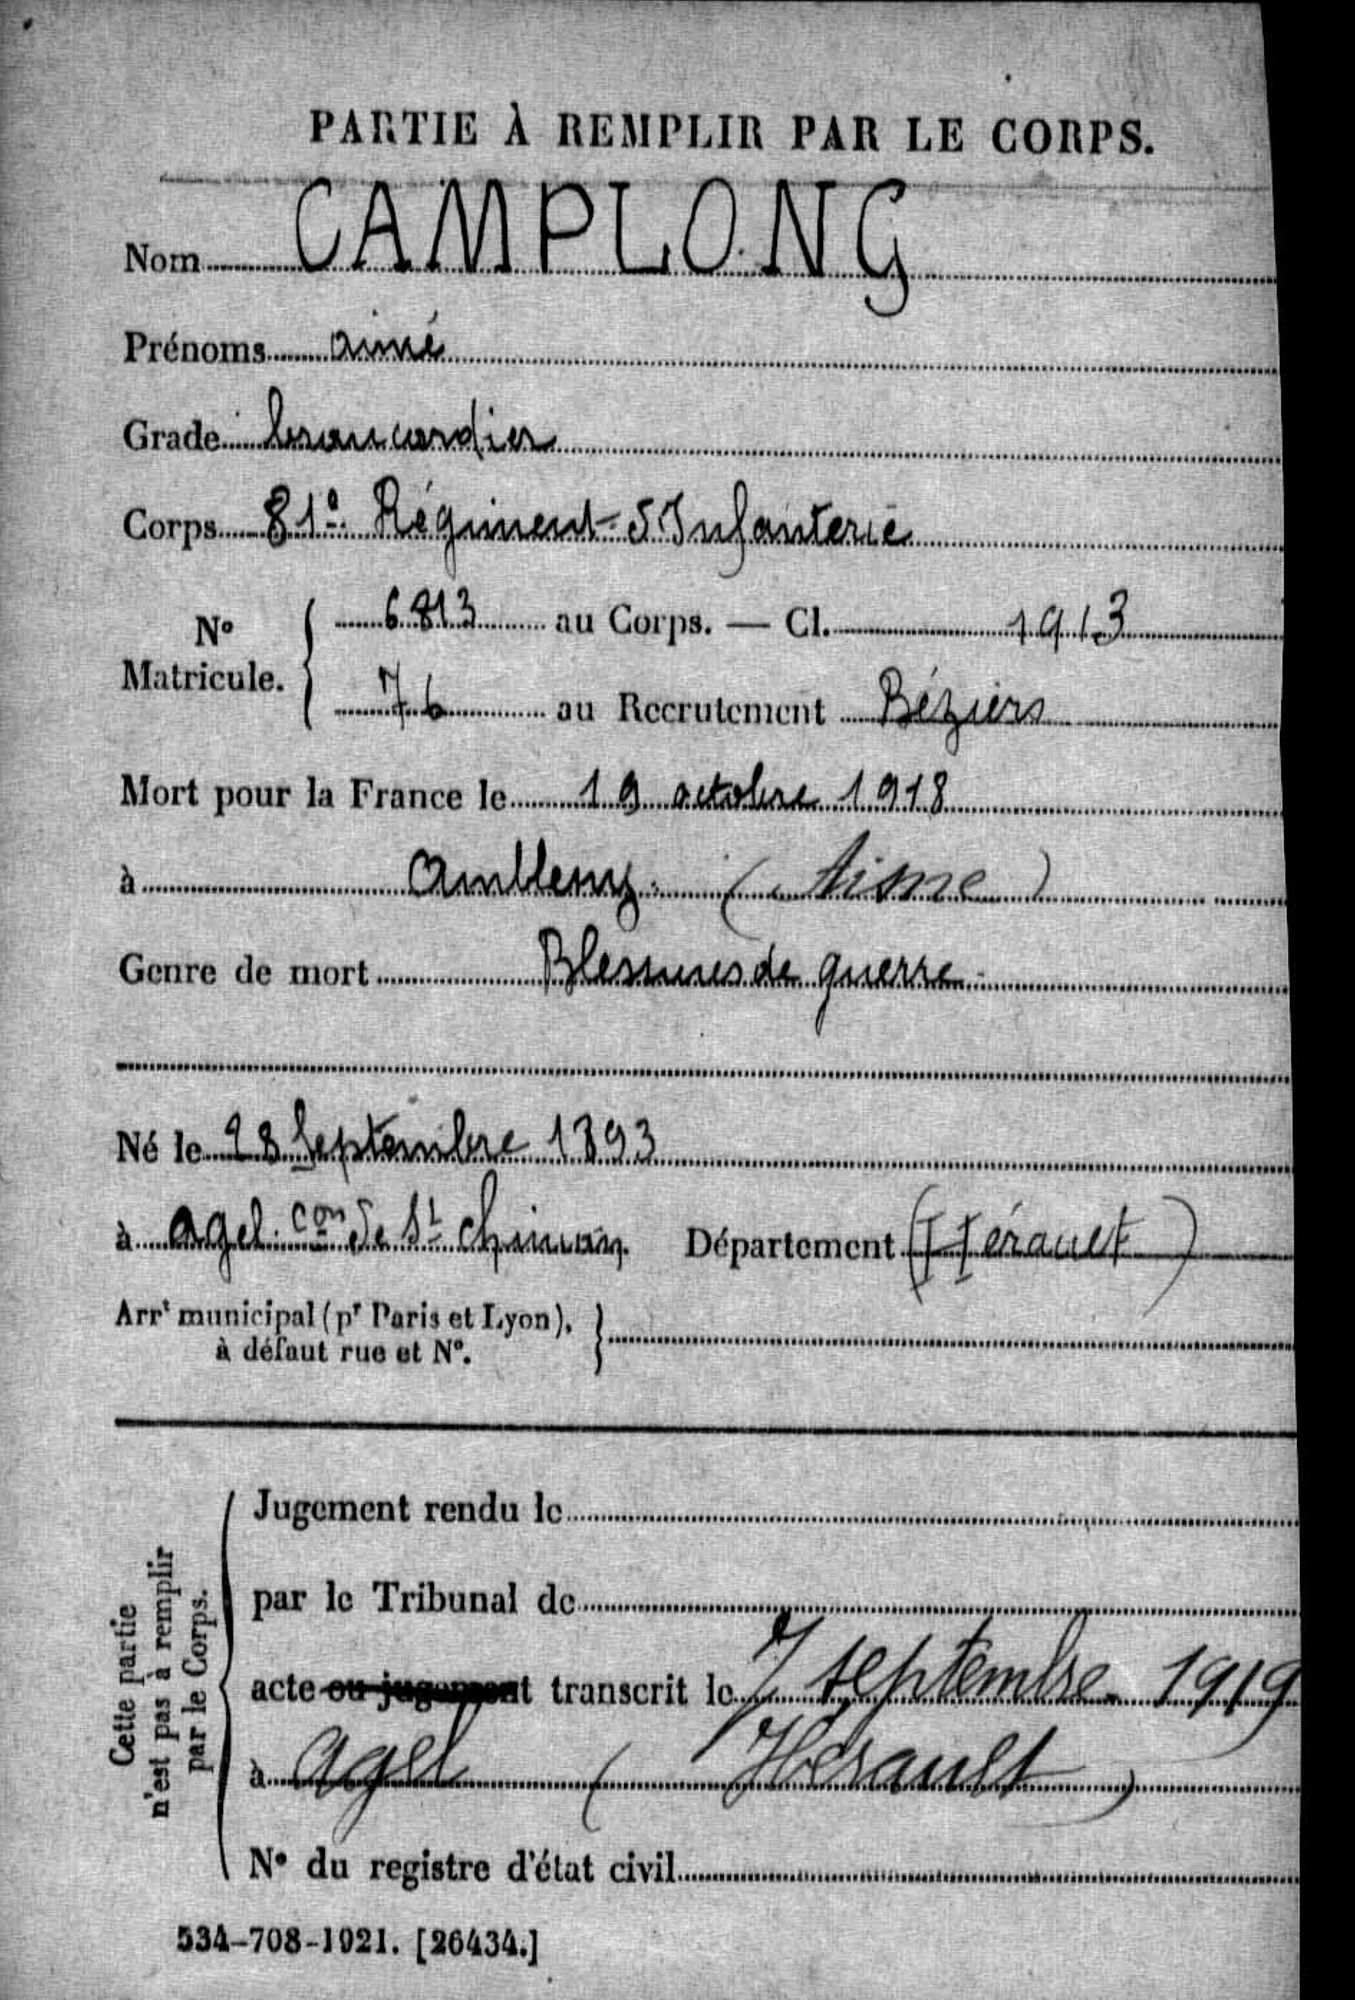 PARTIE À REMPLIR PAR LE CORPS.
Nom CAMPLONG
Prénoms aimé
Grade brancardier
Corps 81e Régiment d'Infanterie
No Matricule. { 6813 au Corps. — Cl. 1913
76 au Recrutement Béziers
Mort pour la France le 19 octobre 1918
à Ambleny (Aisne)
Genre de mort Blessures de guerre
Né le 28 Septembre 1893
à Agel con de St Chinian Département (Hérault)
Arrt municipal (pr Paris et Lyon), à défaut rue et No. }
Cette partie n'est pas à remplir par le Corps.
Jugement rendu le
par le Tribunal de
acte ou jugement transcrit le 7 septembre 1919
à Agel (Hérault)
No du registre d'état civil
534-708-1921. [26434.]